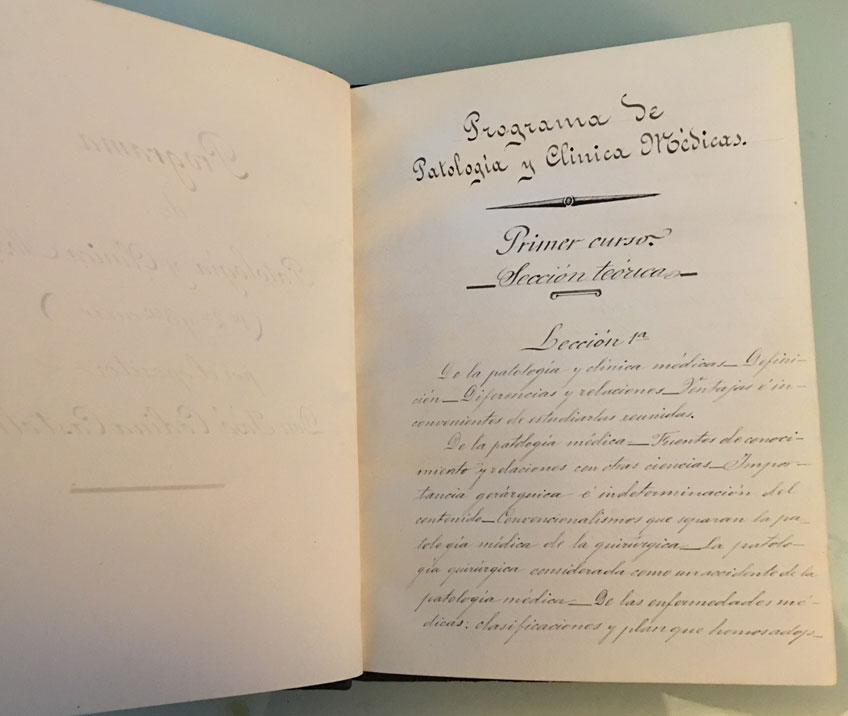 Programa de
Patología y Clínica Médicas.
Primer curso.
Sección teórica
Lección 1ª
De la patología y clínica médicas_ Defini-
ción_ Diferencias y relaciones_ Ventajas é in-
convenientes de estudiarlas reunidas.
De la patología médica_ Fuentes de conoci-
miento y relaciones con otras ciencias_ Impor-
tancia gerárquica é indeterminación del
contenido_ Convencionalismos que separan la pa-
tología médica de la quirúrgica_ La patolo-
gía quirúrgica considerada como un accidente de la
patología médica_ De las enfermedades mé-
dicas: clasificaciones y plan que hemos adop_